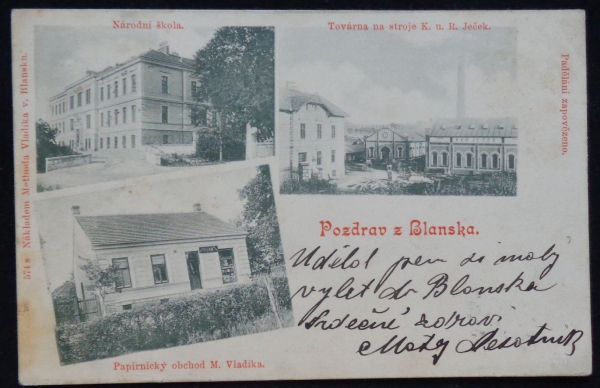 Národní škola.
Továrna na stroje K. u. R. Ječek.
Padělání zapovězeno.
574 Nákladem Methoda Vladíka v. Blansku.
Pozdrav z Blanska.
Udělal jsem si malý
výlet do Blanska
Srdečně zdraví
Papírnický obchod M. Vladíka.